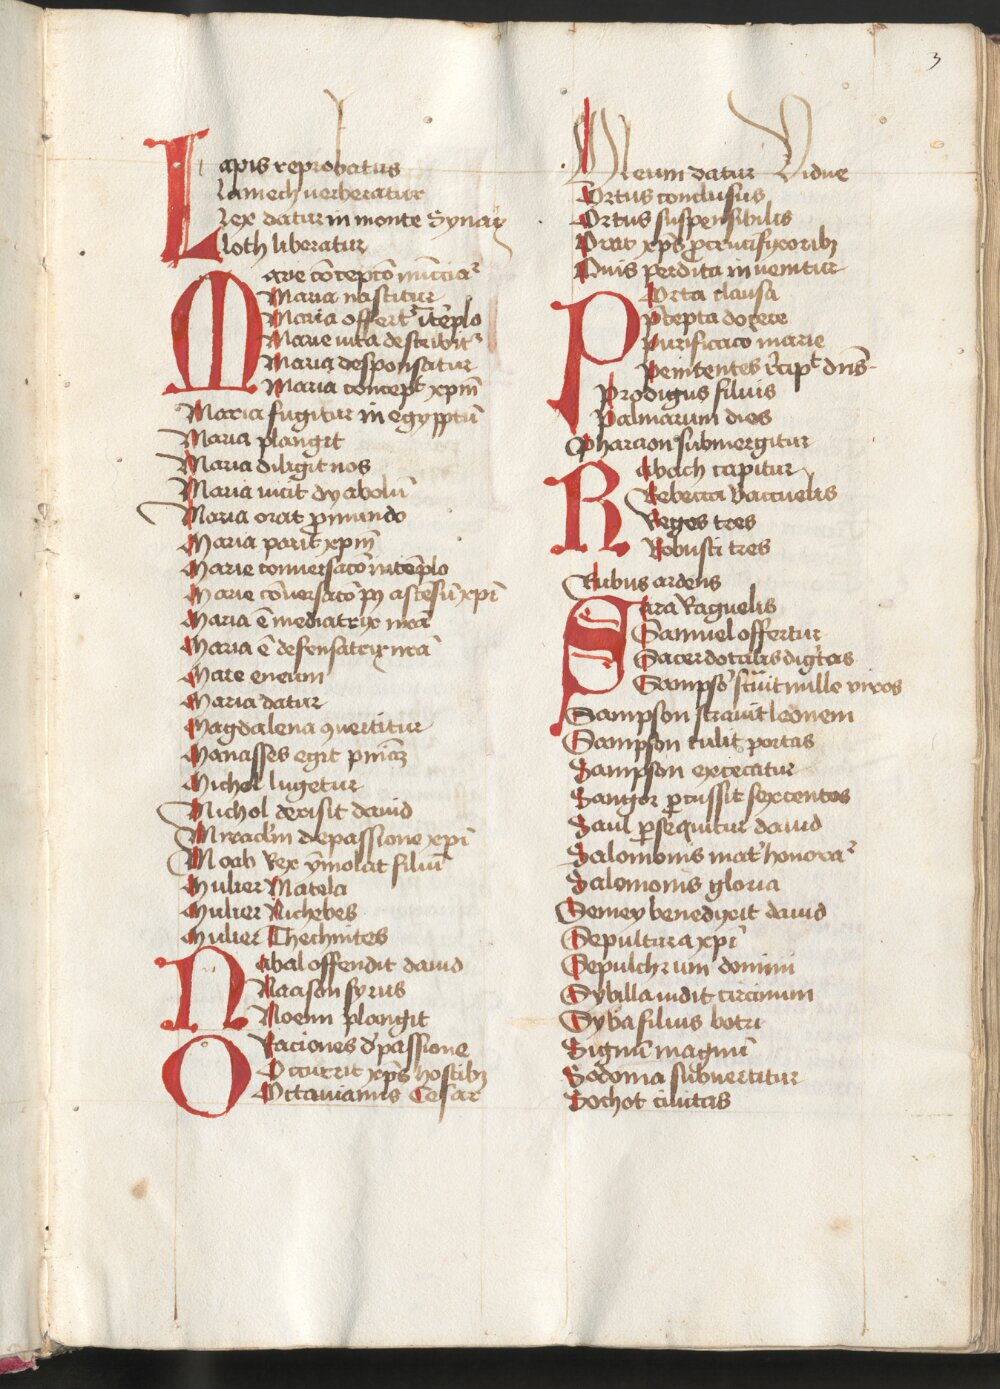 3
Lapis reprobatus
Lamech verberatur
Lex datur in monte Synay
Loth liberatur
Marie cōcepcō nūcciaᷣ
Maria nascitur
Maria offertᷣ ī tēplo
Marie vita describitᷣ
Maria desponsatur
Maria concepit xpm̄
Maria fugitur in egypptū
Maria plangit
Maria diligit nos
Maria vicit dyabolū
Maria orat p mundo
Maria parit xpm̄
Marie conversacō in tēplo
Marie cōversacō p9 ascēsū xpī
Maria ē mediatrix nrā
Maria ē defensatrix nrā
Mare eneum
Maria datur
Magdalena 9vertitur
Manasses egit pniāz
Michol lugetur
Michol derisit david
Mreaclm de passione xpī
Moab Rex ymolat filiū
Mulier Matela
Mulier Nichebes
Mulier Thechuites
Nabal offendit david
Naason syrus
Noemi plangit
Oraciones d' passione
Occurrit xps̄ hostibȝ
Octavianus Cesar
Oleum datur Vidue
Ortus conclusus
Ortus suspensibilis
Orat xps̄ p crucifixoribȝ
Ouis perdita invenitur
Porta clausa
Pcepta docere
Purificaco marie
Penitentes rcipit dns̄
Prodigus filius
Palmarum dies
Pharaon submergitur
Raback capitur
Rebecca Batuelis
Reges tres
Robusti tres
Rubus ardens
Sara Raguelis
Samuel offertur
Sacerdotalis dignitas
Sampso stravit mille viros
Sampson stravit leonem
Sampson tulit portas
Sampson excecatur
Sangor pcussit sexcentos
Saul psequitur david
Salomonis mat' honoraᷣ
Salemonis gloria
Semey benedixit david
Sepultura xpī
Sepulchrum domini
Sybilla vidit circinum
Syba filius botri
Signū magnū
Sodoma subvertitur
Sochot civitas